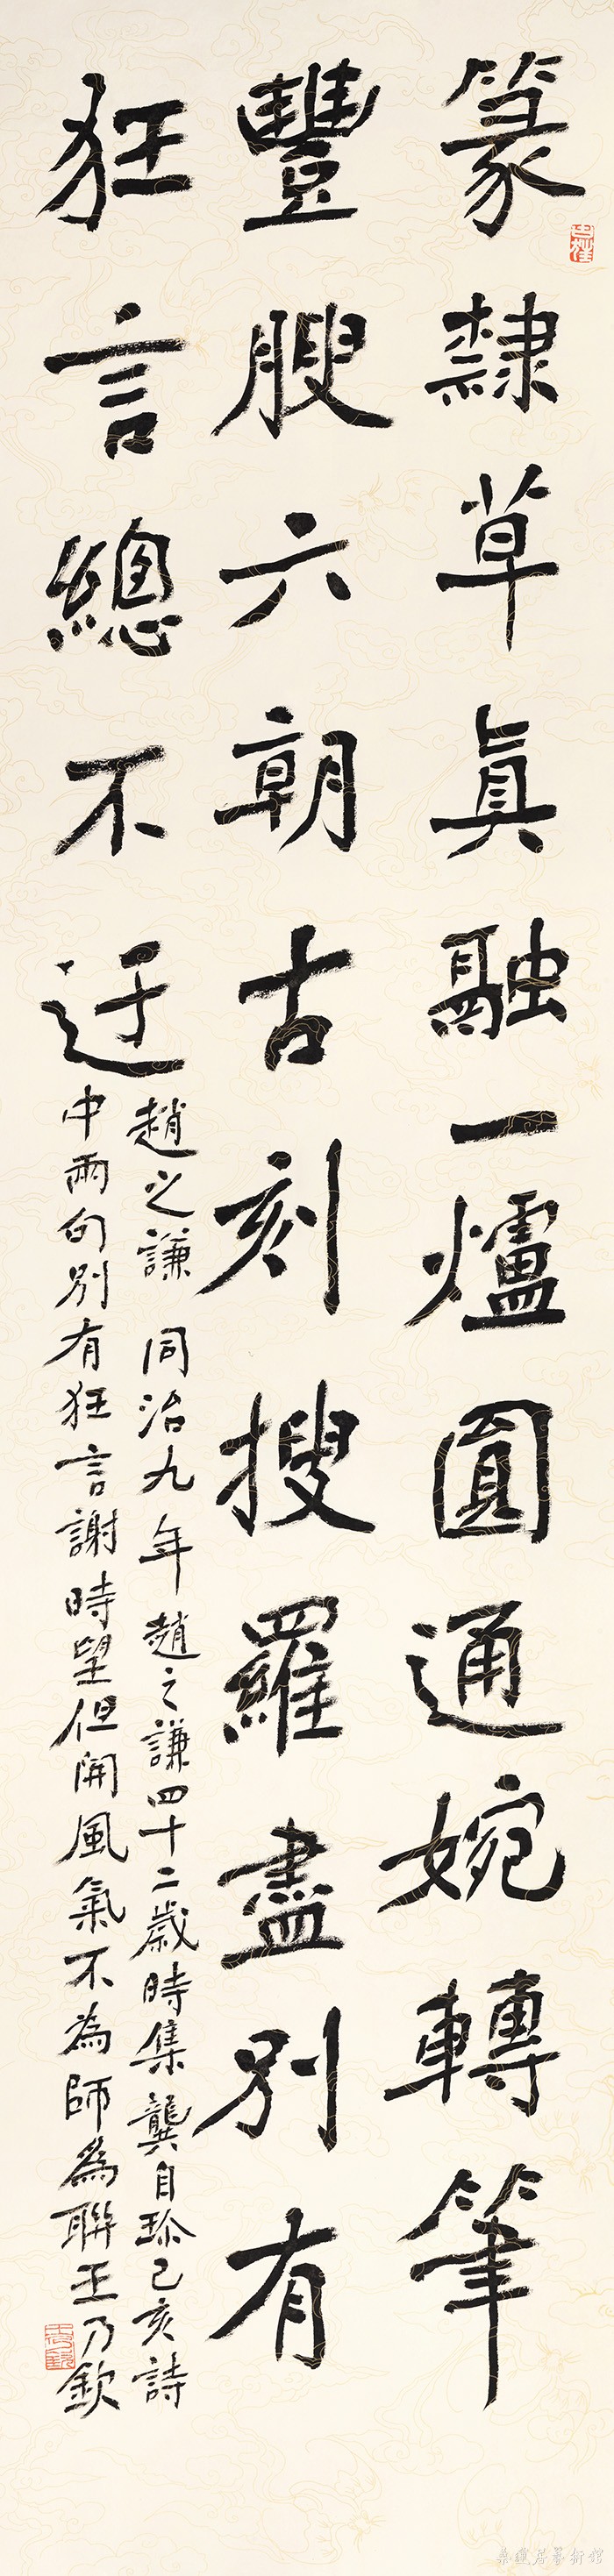 篆隸草真融一爐圓通婉轉筆
豐腴六朝古刻搜羅盡別有
狂言總不迂
趙之謙 同治九年趙之謙四十二歲時集龔自珍己亥詩
中兩句別有狂言謝時望但開風氣不為師為聯王乃欽